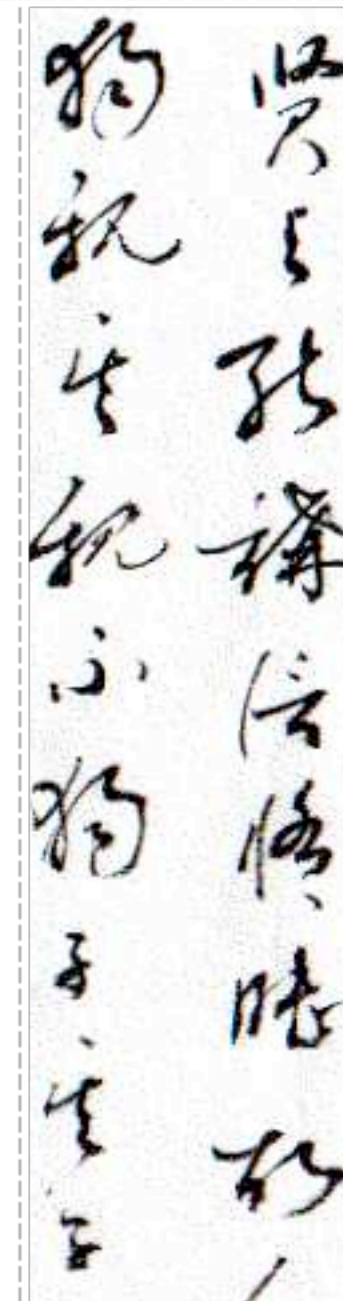 賢与能講信脩睦故
獨親其親不獨子其子